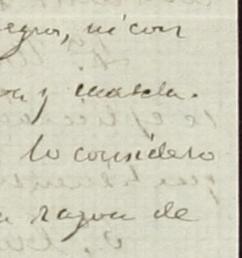 negro, ni con
y mezcla.
lo considero
razon de